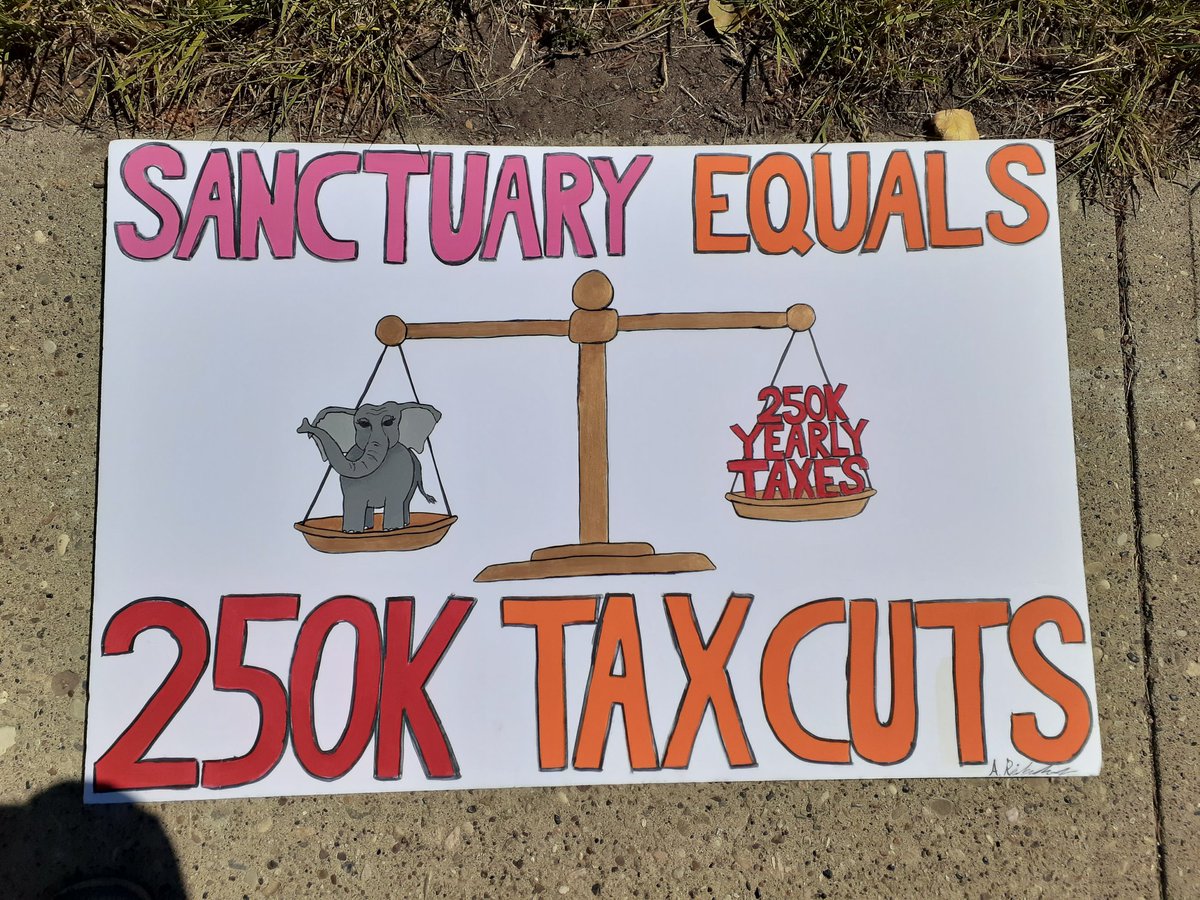 SANCTUARY EQUALS
250K
YEARLY
TAXES
250K TAX CUTS